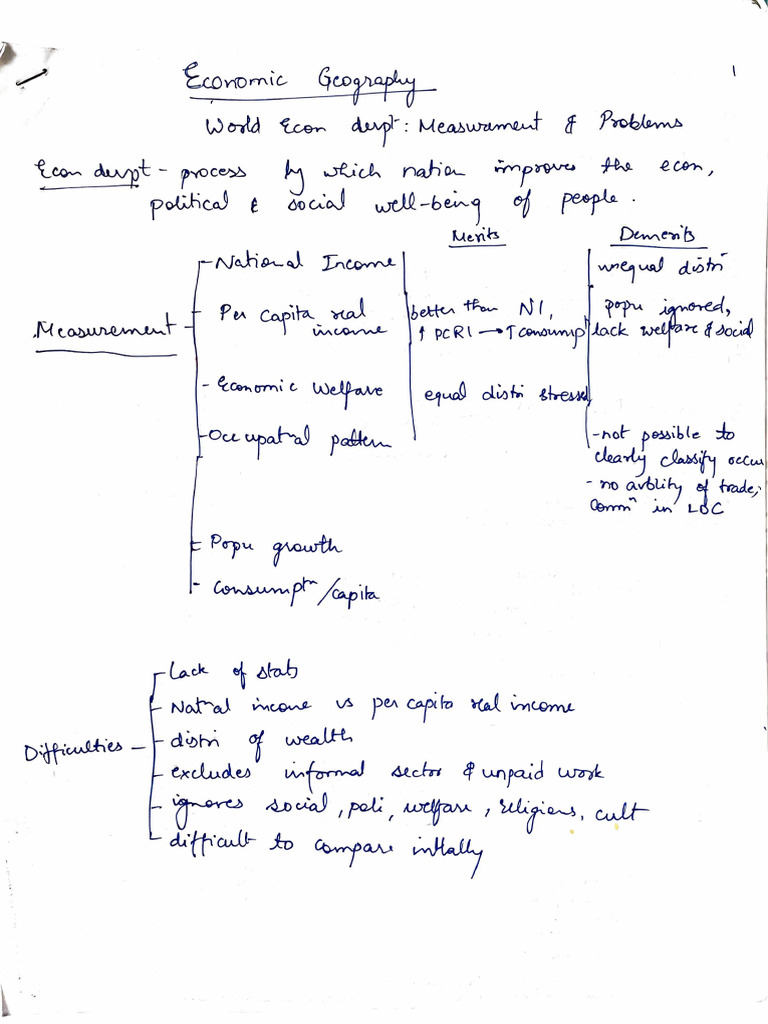 1
Economic Geography
World Econ devpt: Measurement & Problems
Econ devpt - process by which nation improves the econ,
political & social well-being of people.
Merits
Demerits
Measurement
- National Income
unequal distri
- Per capita real income
better than NI, ↑ PCRI → ↑ consumpt
popu ignored, lack welfare & social
- Economic Welfare
equal distri stressed
- Occupatnal pattern
- not possible to clearly classify occu
- no avblity of trade, commn in LDC
- Popu growth
- Consumptn/capita
Difficulties
- Lack of stats
- Natnal income vs per capita real income
- distri of wealth
- excludes informal sector & unpaid work
- ignores social, poli, welfare, religions, cult
- difficult to compare intnally